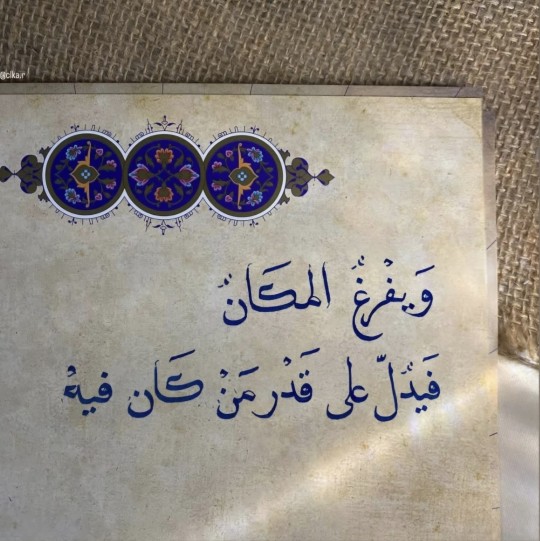 @clka.r
وَيفْرغُ المكَانُ
فَيَدُلّ على قَدْر مَنْ كَان فيهْ